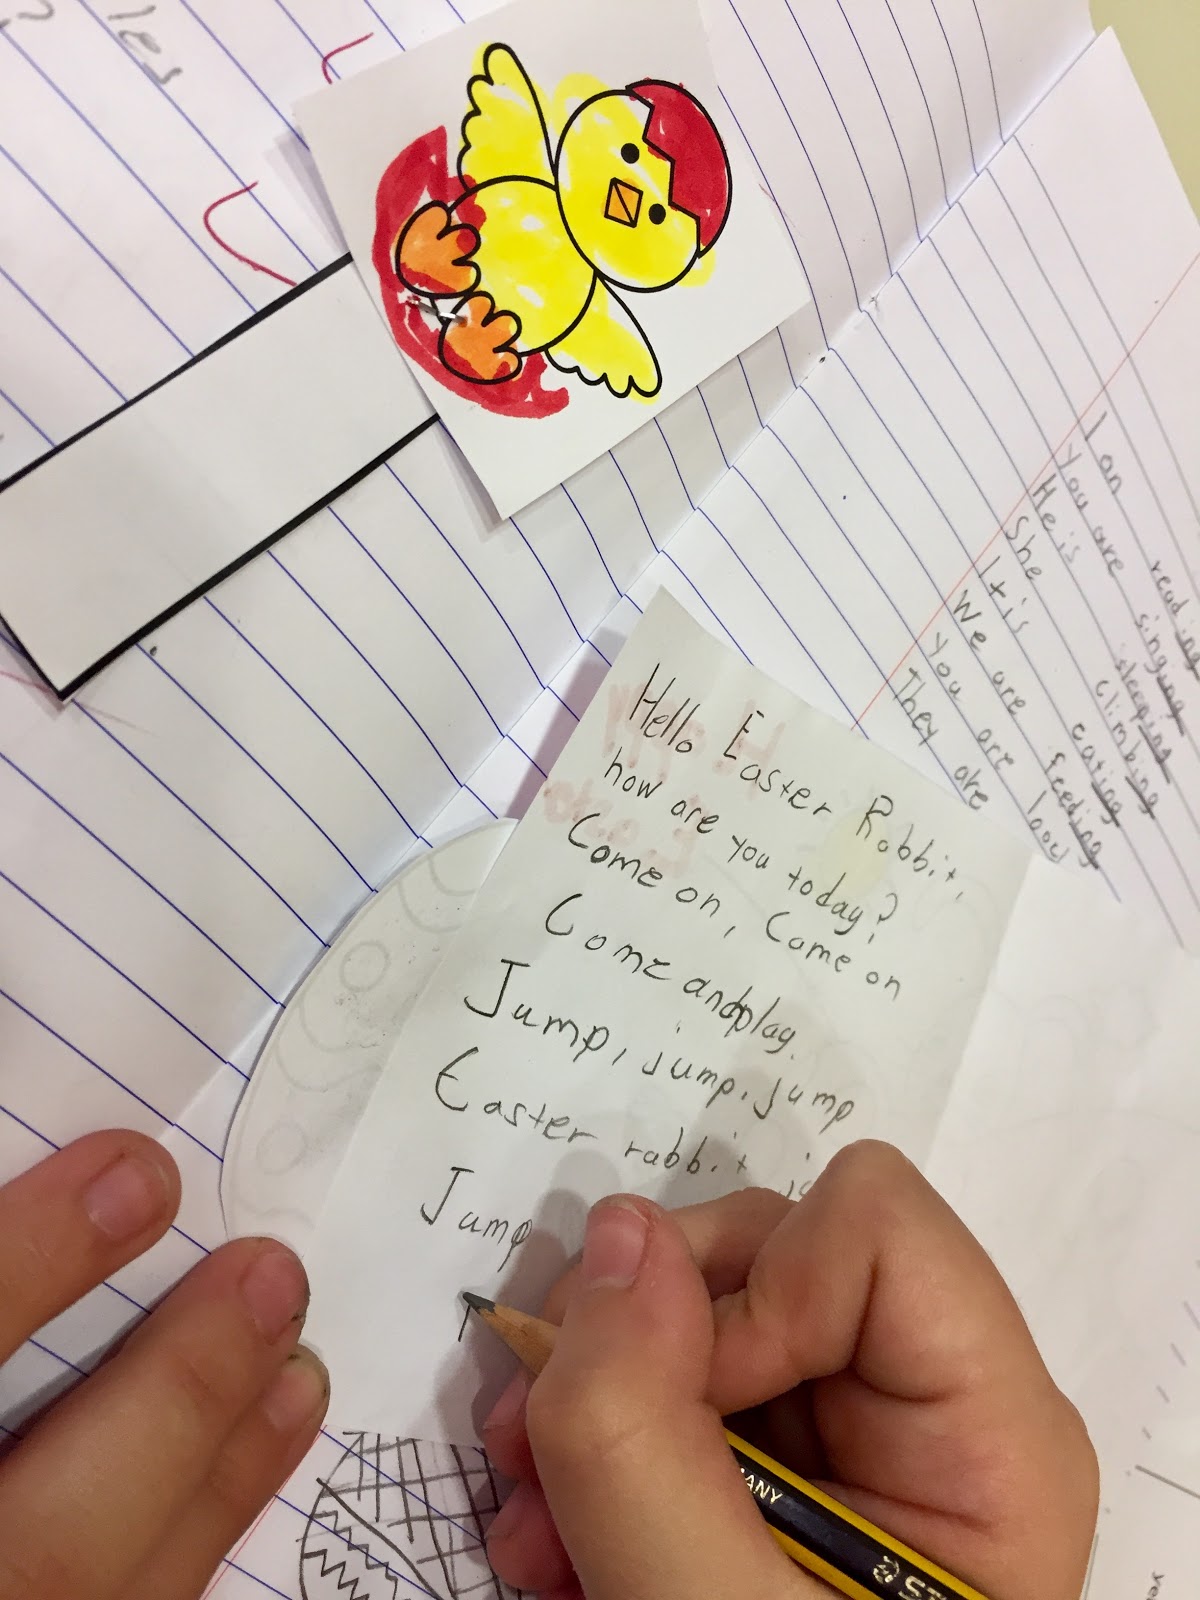 les
I an reading
You are singing
He is sleeping
She climbing
It is eating
We are feeding
You are
They are
Hello Easter Rabbit,
how are you today?
Come on, Come on
Come and play.
Jump, jump, jump
Easter rabbit
Jump
MANY